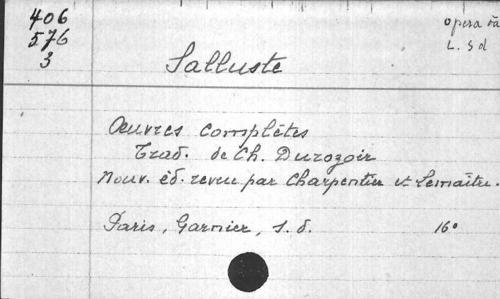 406
576
3
opera
L. S d
Salluste
Oeuvres complètes
Trad. de Ch. Durozoir
Nouv. éd. revue par Charpentier et Lemaître.
Paris, Garnier, s. d. 16°